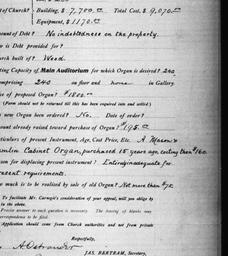 of Church? { Building, $ 7,900.00 Total Cost, $ 9,070.00
Equipment, $ 1170.00
ount of Debt? No indebtedness on the property.
is Debt provided for?
ch built of? Wood
ting Capacity of Main Auditorium for which Organ is desired? 240
omprising 240 on floor and none in Gallery.
e of proposed Organ? $1800.00
(Form should not be returned till this has been enquired into and settled.)
new Organ been ordered? No. Date of order?
ount already raised toward purchase of Organ? $195.00
rticulars of present Instrument, Age, Cost Price, Etc. A Mason &
amlin Cabinet Organ, purchased 15 years ago, costing than $160.
ason for displacing present instrument? Entirely inadequate for
resent requirements.
much is to be realized by sale of old Organ? Not more than $75
To facilitate Mr. Carnegie's consideration of your appeal, will you oblige by
in the above.
Precise answer to each question is necessary. The leaving of blanks may
correspondence to be filed.
Application should come from Church authorities and not from private
Respectfully,
JAS. BERTRAM, Secretary,